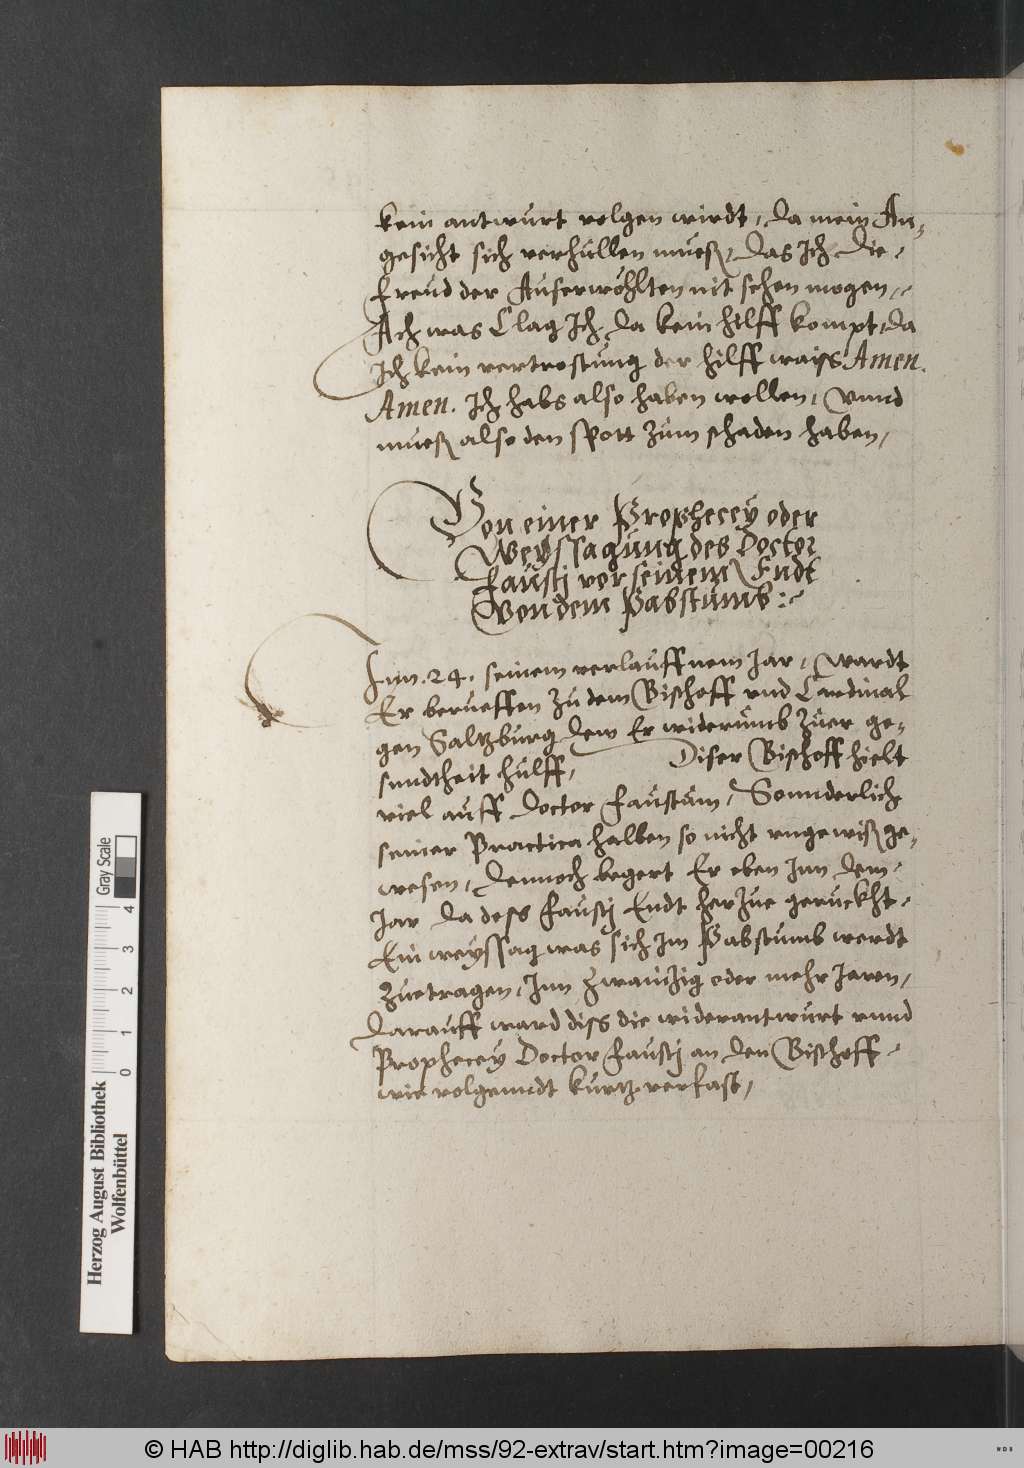 kein antwurt volgen wirdt, da mein An-
gesicht sich verhüllen mueß, das Ich die
freud der Auserwöhlten nit sehen mögen,
Ach was Clag Ich da kein hilff kompt, da
Ich kein vertröstung der hilff waiss Amen.
Amen. Ich habs also haben wollen, Vnnd
mueß also den spott zům schaden haben,
Von einer Prophecey oder
Weyssagung des Doctor
Faustj vor seinem Endt
Von dem Pabstumb:
Inn .24. seinem verlauffnem Jar, Wardt
Er berueffen zu dem Bischoff vnd Cardinal
gen Saltzburg dem Er widerumb zuer ge-
sundtheit hulff, Diser Bischoff hielt
viel auff Doctor Faustum, Sonnderlich
seiner Practica halben so nicht vngewiß ge-
wesen, dennoch begert Er eben Inn dem
Jar da dess Faustj Endt herzue geruckht
Ein weyssag was sich Im Pabstumb werdt
Zuetragen, Inn Zwanzig oder mehr Jaren,
Darauff ward diss die widerantwurt vnnd
Prophecey Doctor Faustj an den Bischoff
wie volgenndt kurtz verfast,
Herzog August Bibliothek
Wolfenbüttel
0 1 2 3 4
Gray Scale
© HAB http://diglib.hab.de/mss/92-extrav/start.htm?image=00216